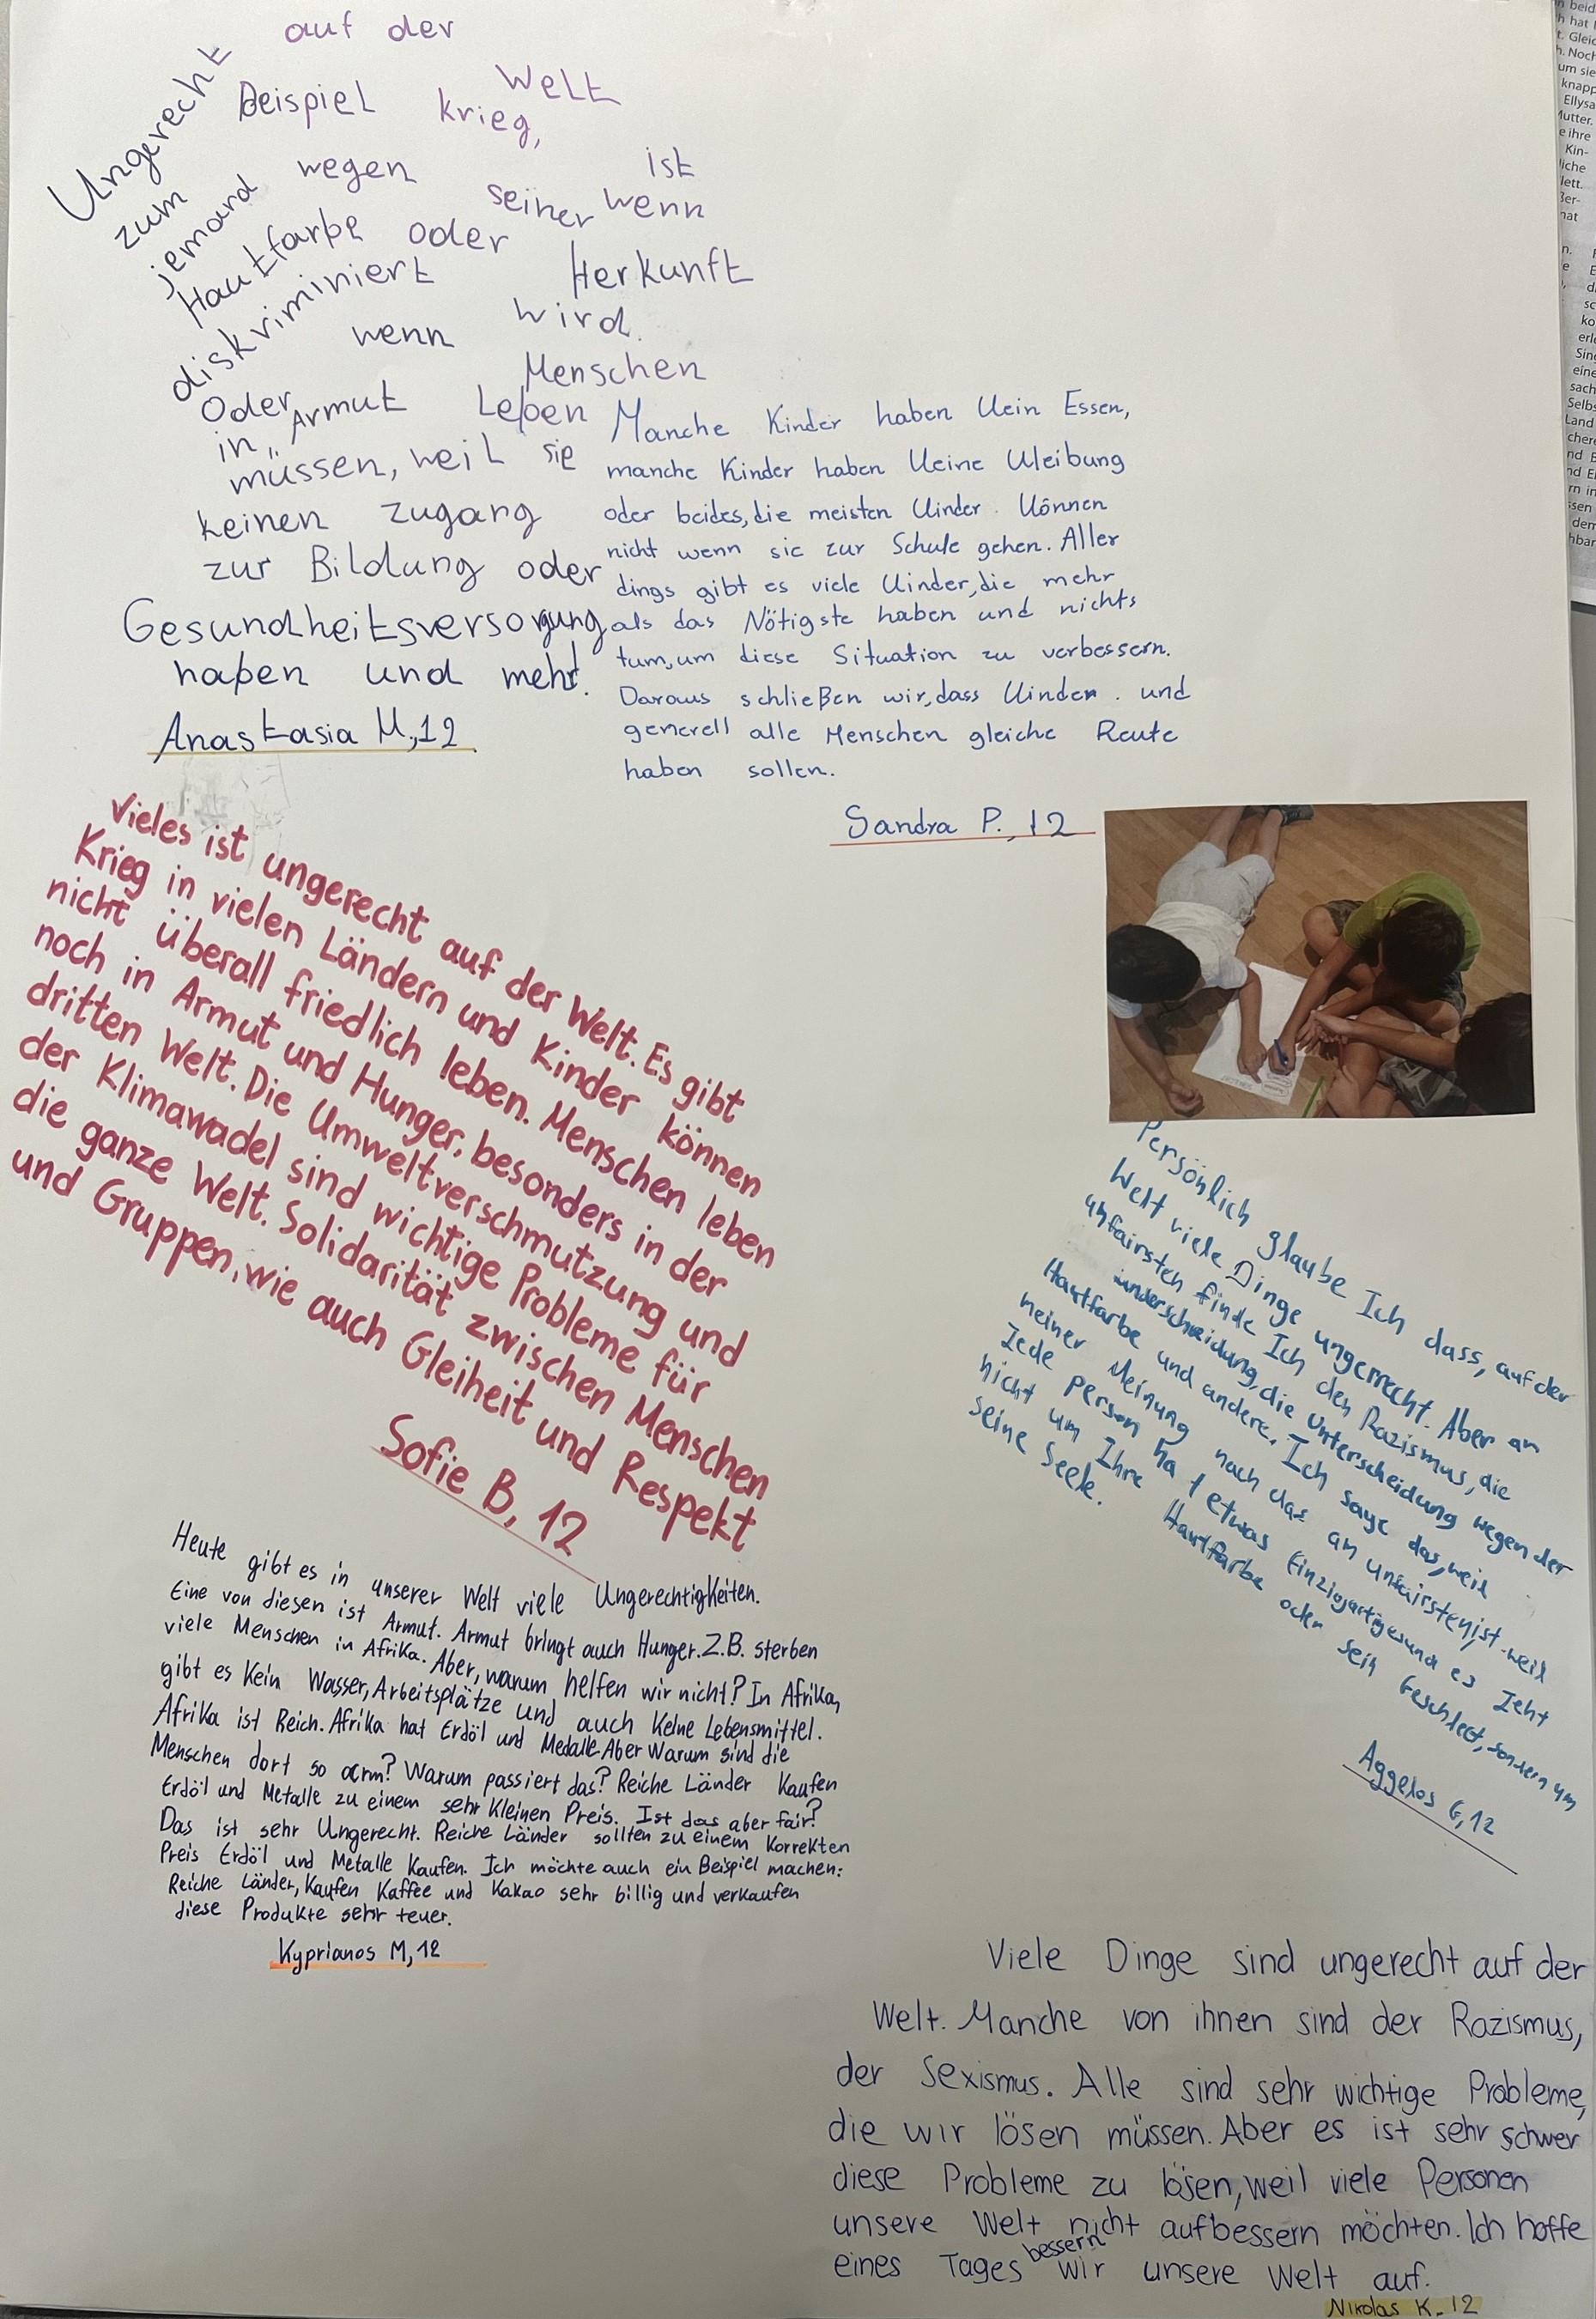 Ungerecht auf der Welt ist
zum Beispiel Krieg, wenn
jemand wegen seiner
Hautfarbe oder Herkunft
diskriminiert wird.
Oder wenn Menschen
in Armut Leben
müssen, weil sie
keinen zugang
zur Bildung oder
Gesundheitsversorgung
haben und mehr.
Anastasia M,12
Manche Kinder haben kein Essen,
manche Kinder haben keine kleibung
oder beides, die meisten kinder können
nicht wenn sie zur Schule gehen. Aller
dings gibt es viele kinder, die mehr
als das Nötigste haben und nichts
tum, um diese Situation zu verbessern.
Daraus schließen wir, dass kinder und
generell alle Menschen gleiche Reute
haben sollen.
Sandra P., 12
Vieles ist ungerecht auf der Welt. Es gibt
Krieg in vielen Ländern und Kinder können
nicht überall friedlich leben. Menschen leben
noch in Armut und Hunger, besonders in der
dritten Welt. Die Umweltverschmutzung und
der Klimawadel sind wichtige Probleme für
die ganze Welt. Solidarität zwischen Menschen
und Gruppen, wie auch Gleiheit und Respekt
Sofie B, 12
Persönlich glaube Ich dass, auf der
Welt viele Dinge ungerrecht. Aber an
unfairsten finde Ich den Razismus, die
underscheidung, die Unterscheidung wegen der
Hautfarbe und andere. Ich sage das, weil
meiner Meinung nach das an unfairsten ist. weil
Jede person hat etwas Einzigartiges und es Zeht
nicht um Ihre Hautfarbe oder sein Geschlect, sondern um
seine Seele.
Aggelos G, 12
Heute gibt es in unserer Welt viele Ungerechtigkeiten.
Eine von diesen ist Armut. Armut bringt auch Hunger. Z.B. sterben
viele Menschen in Afrika. Aber, warum helfen wir nicht? In Afrika,
gibt es Kein Wasser, Arbeitsplätze und auch Keine Lebensmittel.
Afrika ist Reich. Afrika hat Erdöl und Medalle. Aber Warum sind die
Menschen dort so arm? Warum passiert das? Reiche Länder Kaufen
Erdöl und Metalle zu einem sehr Kleinen Preis. Ist das aber fair?
Das ist sehr Ungerecht. Reiche Länder sollten zu einem Korrekten
Preis Erdöl und Metalle Kaufen. Ich möchte auch ein Beispiel machen:
Reiche Länder, Kaufen Kaffee und Kakao sehr billig und verkaufen
diese Produkte sehr teuer.
Kyprianos M, 12
Viele Dinge sind ungerecht auf der
Welt. Manche von ihnen sind der Razismus,
der Sexismus. Alle sind sehr wichtige Probleme,
die wir lösen müssen. Aber es ist sehr schwer
diese Probleme zu lösen, weil viele Personen
unsere Welt nicht aufbessern möchten. Ich hoffe
eines Tages bessern wir unsere Welt auf.
Nikolas K. 12